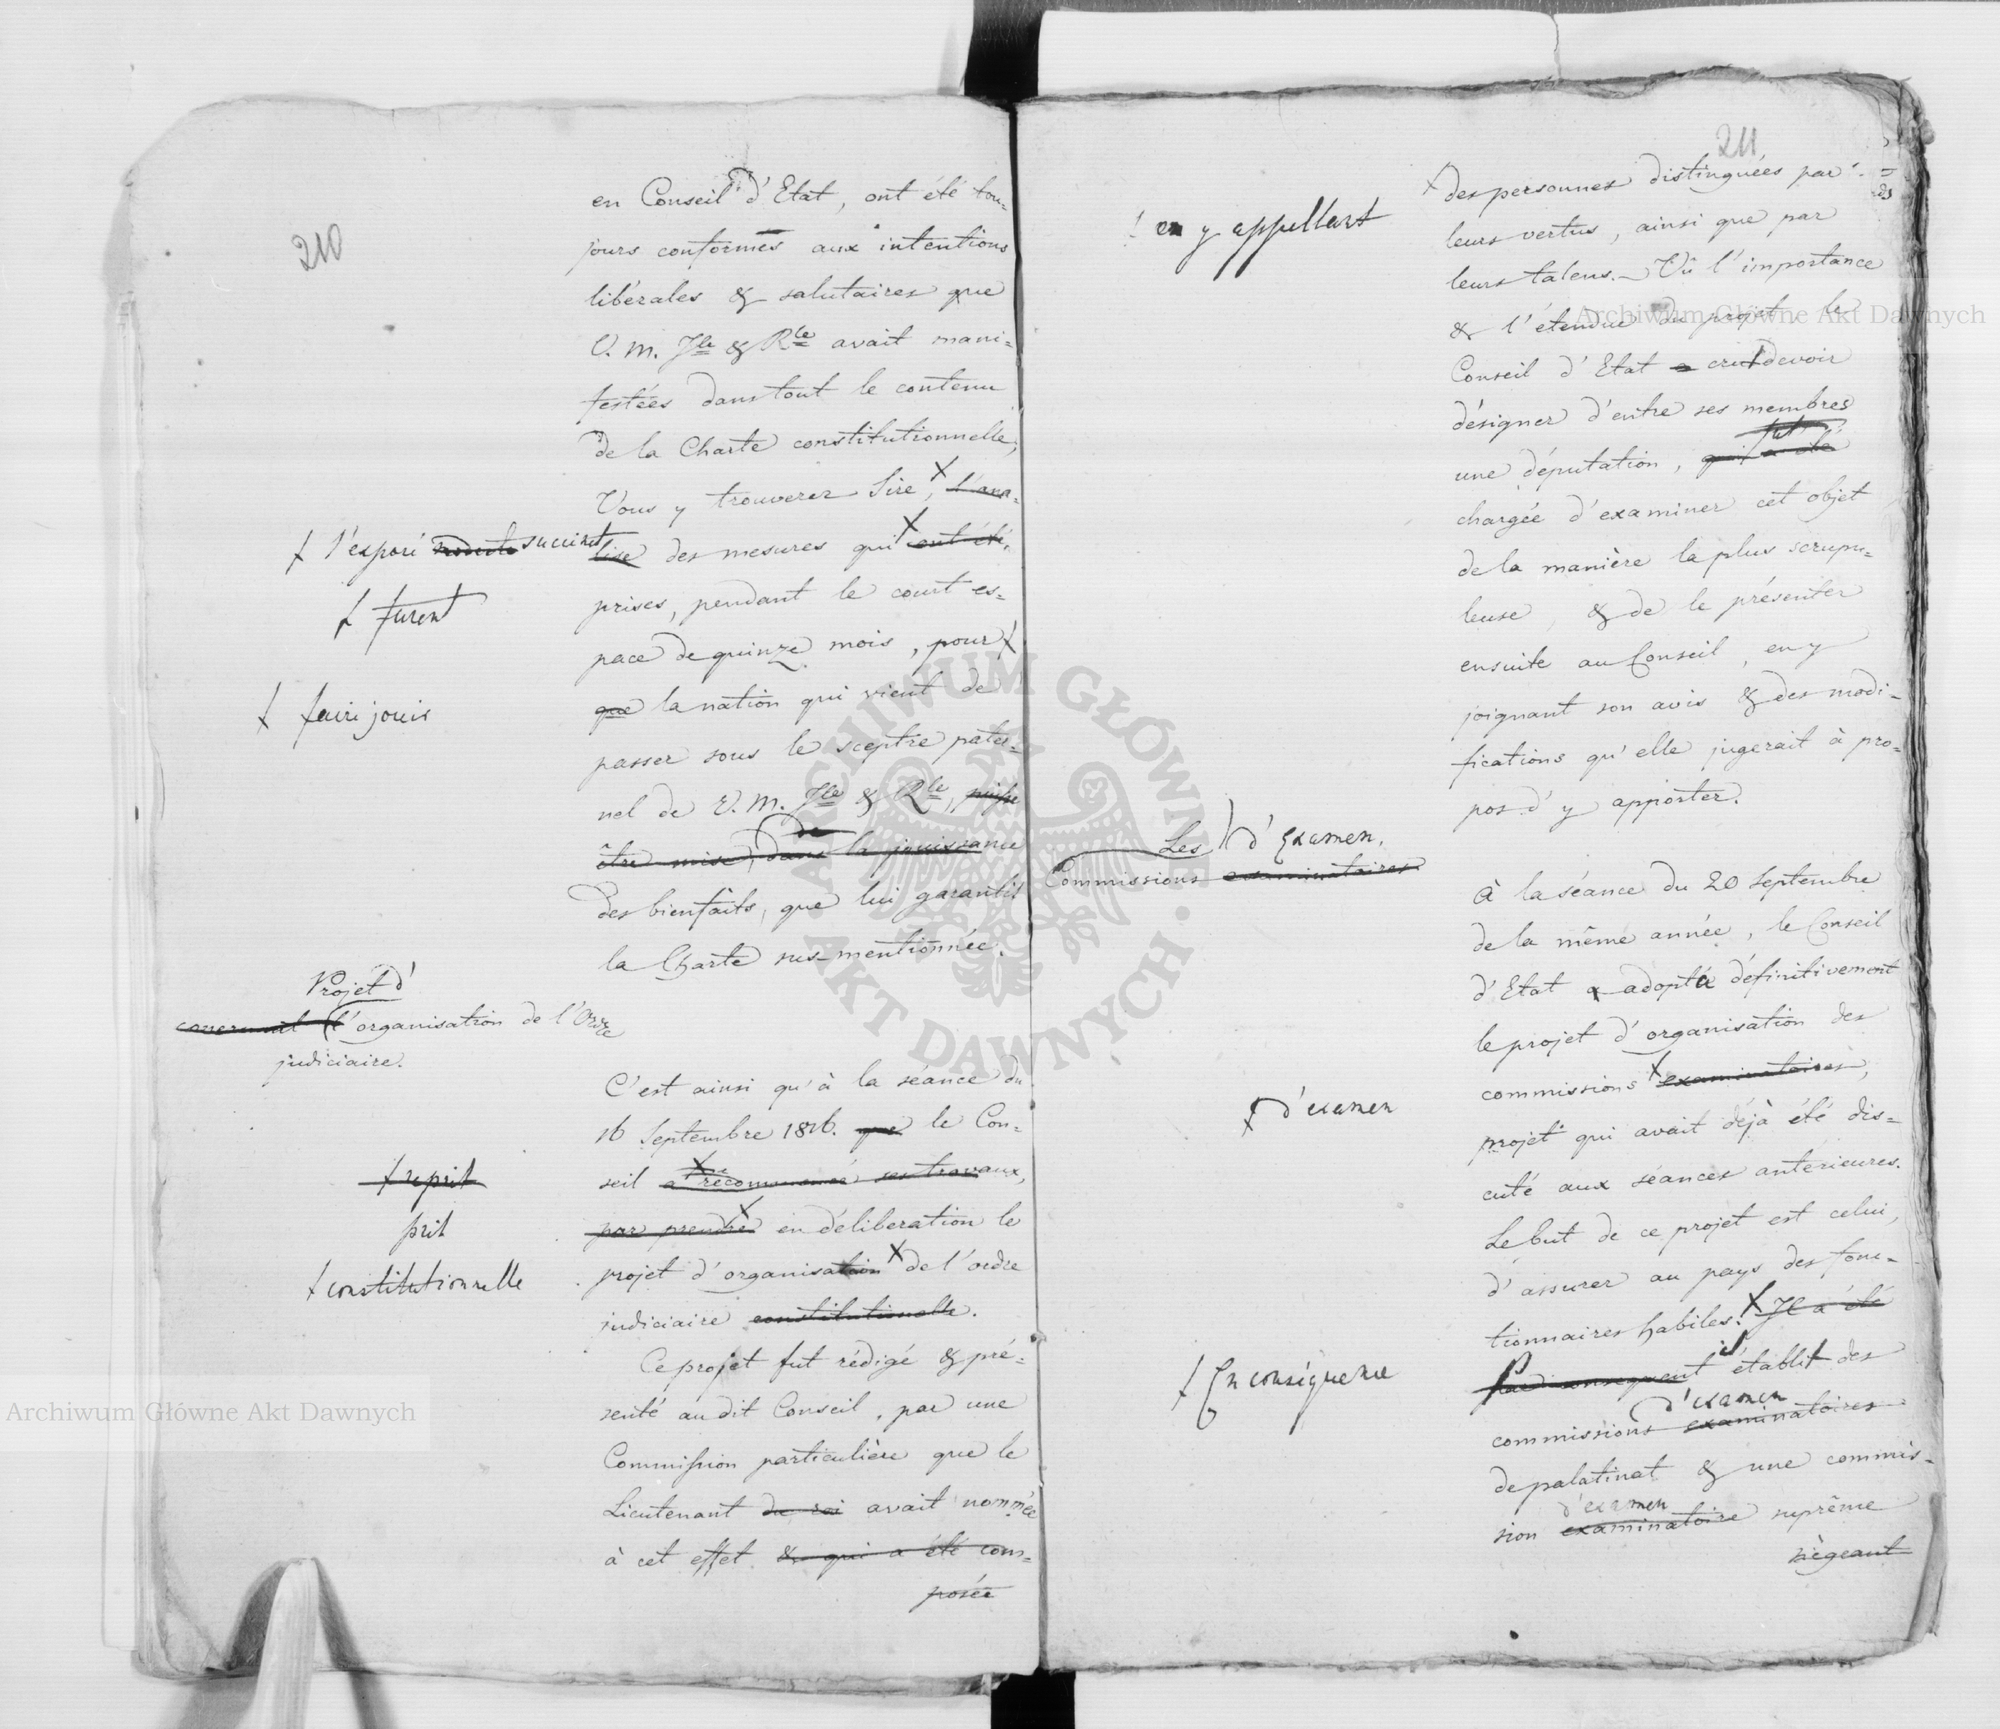 210
en Conseil d'Etat, ont été tou=
jours conformes aux intentions
libérales & salutaires que
V. M. Jle & Rle avait mani=
festées dans tout le contenu
de la Charte constitutionnelle;
Vous y trouverez Sire, l'ana=
lise des mesures qui ont été
prises, pendant le court es=
pace de quinze mois, pour
que la nation qui vient de
passer sous le sceptre pater=
nel de V. M. Jle & Rle, puisse
être mise, dans de la jouissance
des bienfaits, que lui garantit
la Charte sus-mentionnée.
l'exposé succinct
furent
faire jouir
Projet d'
concernant l'organisation de l'Ordre
judiciaire.
C'est ainsi qu'à la séance du
16 Septembre 1816. que le Con=
seil a recommencé ses travaux,
par prendre en déliberation le
projet d'organisation de l'ordre
judiciaire constitutionelle.
reprit
prit
constitutionnelle
Ce projet fut rédigé & pré=
senté au dit Conseil, par une
Commission particulière que le
Lieutenant du roi avait nommée
à cet effet & qui a été com=
posée
211
en y appellant
des personnes distinguées par
leurs vertus, ainsi que par
leurs talens. Vû l'importance
& l'étendue du projet le
Conseil d'Etat a crut devoir
désigner d'entre ses membres
une députation, qui a été
chargée d'examiner cet objet
de la manière la plus scrupu=
leuse, & de le présenter
ensuite au Conseil, en y
joignant son avis & des modi=
fications qu'elle jugerait à pro=
pos d'y apporter.
Les d'Examen.
Commissions examinatoires
À la séance du 20 Septembre
de la même année, le Conseil
d'Etat a adopta définitivement
le projet d'organisation des
commissions examinatoires,
d'examen
projet qui avait déjà été dis=
cuté aux séances anterieures.
Le but de ce projet est celui,
d'assurer au pays des fonc=
tionnaires habiles. Il a été
En conséquence
par conséquent il établit des
d'examen
commissions examinatoires
de palatinat & une commis=
d'examen
sion examinatoire suprême
siègeant
Archiwum Główne Akt Dawnych
Archiwum Główne Akt Dawnych
ARCHIWUM GŁÓWNE AKT DAWNYCH